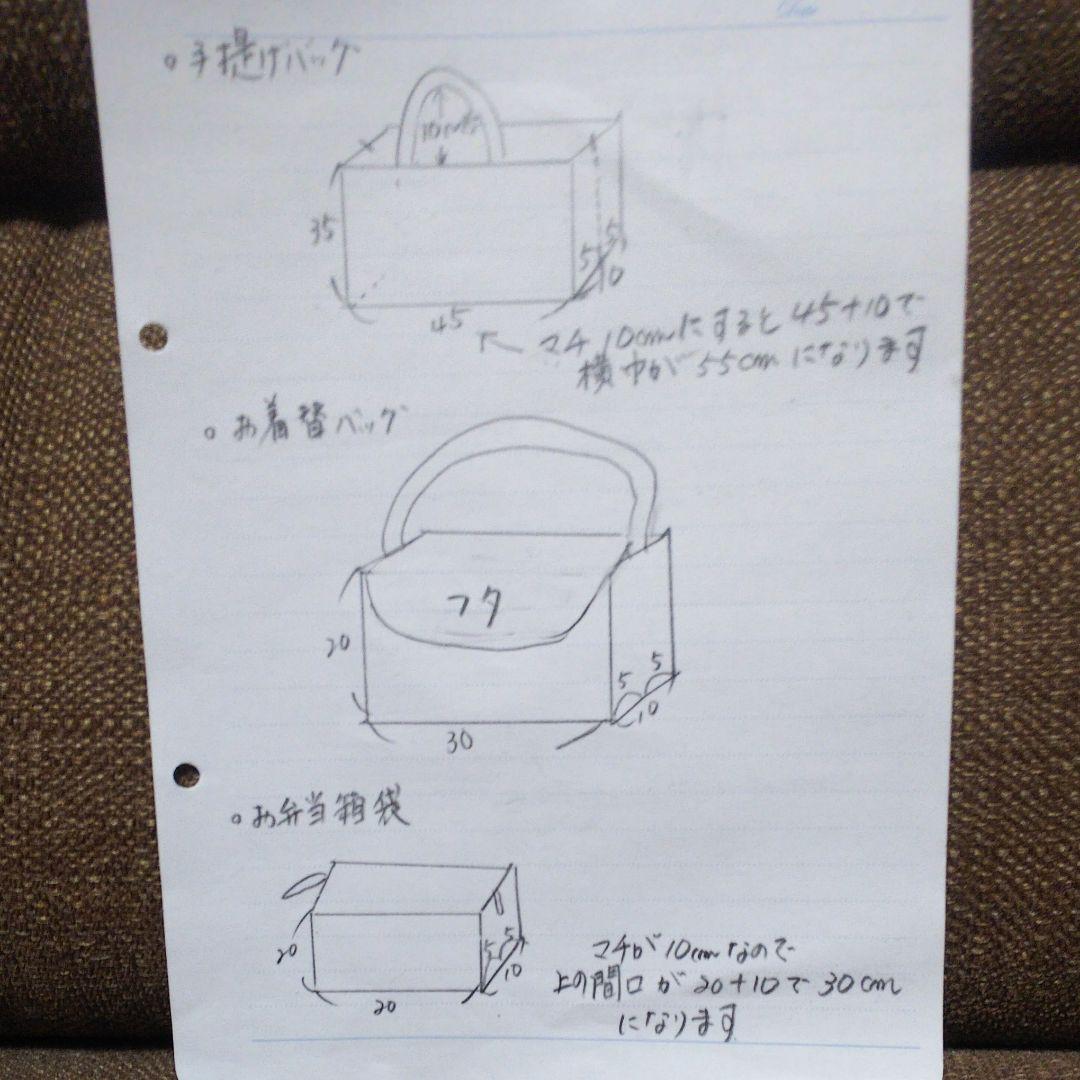 。手提げバッグ
10cm
35
5
5
10
45
マチ10cmにすると45+10で
横巾が55cmになります
。お着替バッグ
フタ
20
5
5
10
30
。お弁当箱袋
20
5
5
10
20
マチが10cmなので
上の間口が20+10で30cm
になります